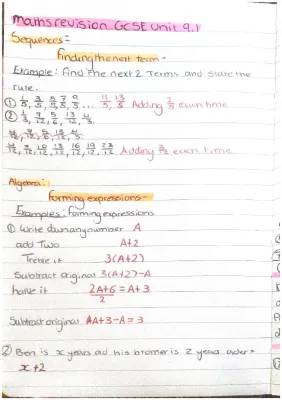 maths revision GCSE Unit 9.1
Sequences:-
Finding the next term -
Example: Find the next 2 Terms and state the
rule.
① 1/5, 3/5, 5/5, 7/5, 9/5 ... 11/5, 13/5 Adding 2/5 each time
②
Adding 3/12 each time
Algebra:
Forming expressions-
Examples: Forming expressions
① Write down any number A
add Two A+2
Treble it 3(A+2)
Subtract original 3(A+2)-A
halve it 2A+6/2 = A+3
Subtract original A+3-A = 3
② Ben is x years old his brother is 2 years older
x+2